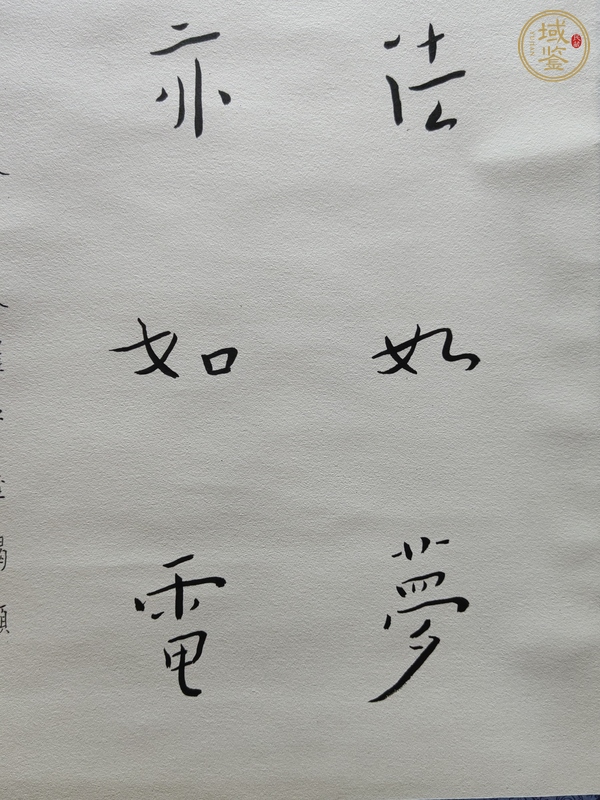 法如夢
亦如電
域鉴